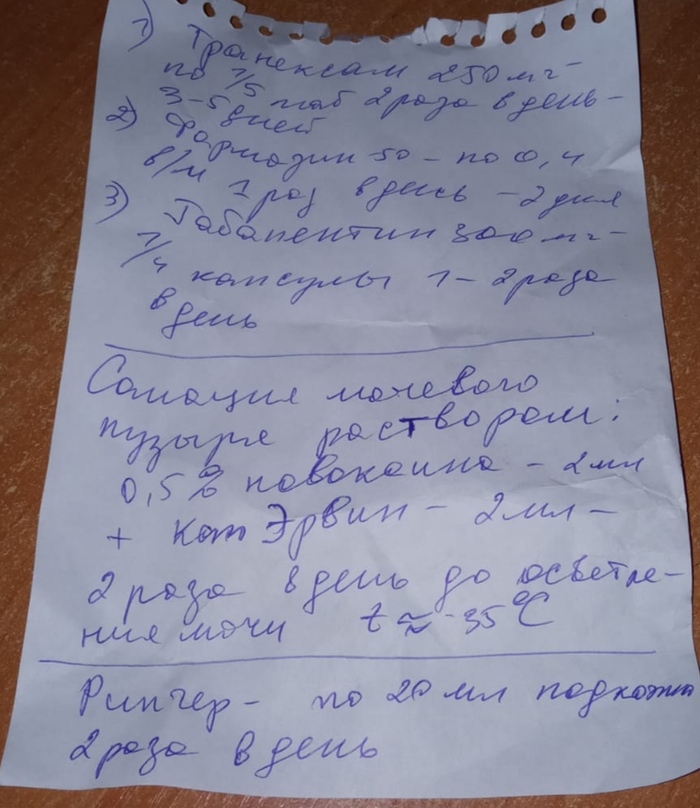 1) Транексам 250 мг -
по 1/5 таб 2 раза в день -
3-5 дней
2) Фармазин 50 - по 0,4
в/м 1 раз в день - 2 дня
3) Габапентин 300 мг -
1/4 капсулы 1-2 раза
в день
Санация мочевого
пузыря раствором:
0,5% новокаина - 2 мл
+ Кот Эрвин - 2 мл -
2 раза в день до осветле-
ния мочи t ≈ 35°С
Рингер - по 20 мл подкожно
2 раза в день